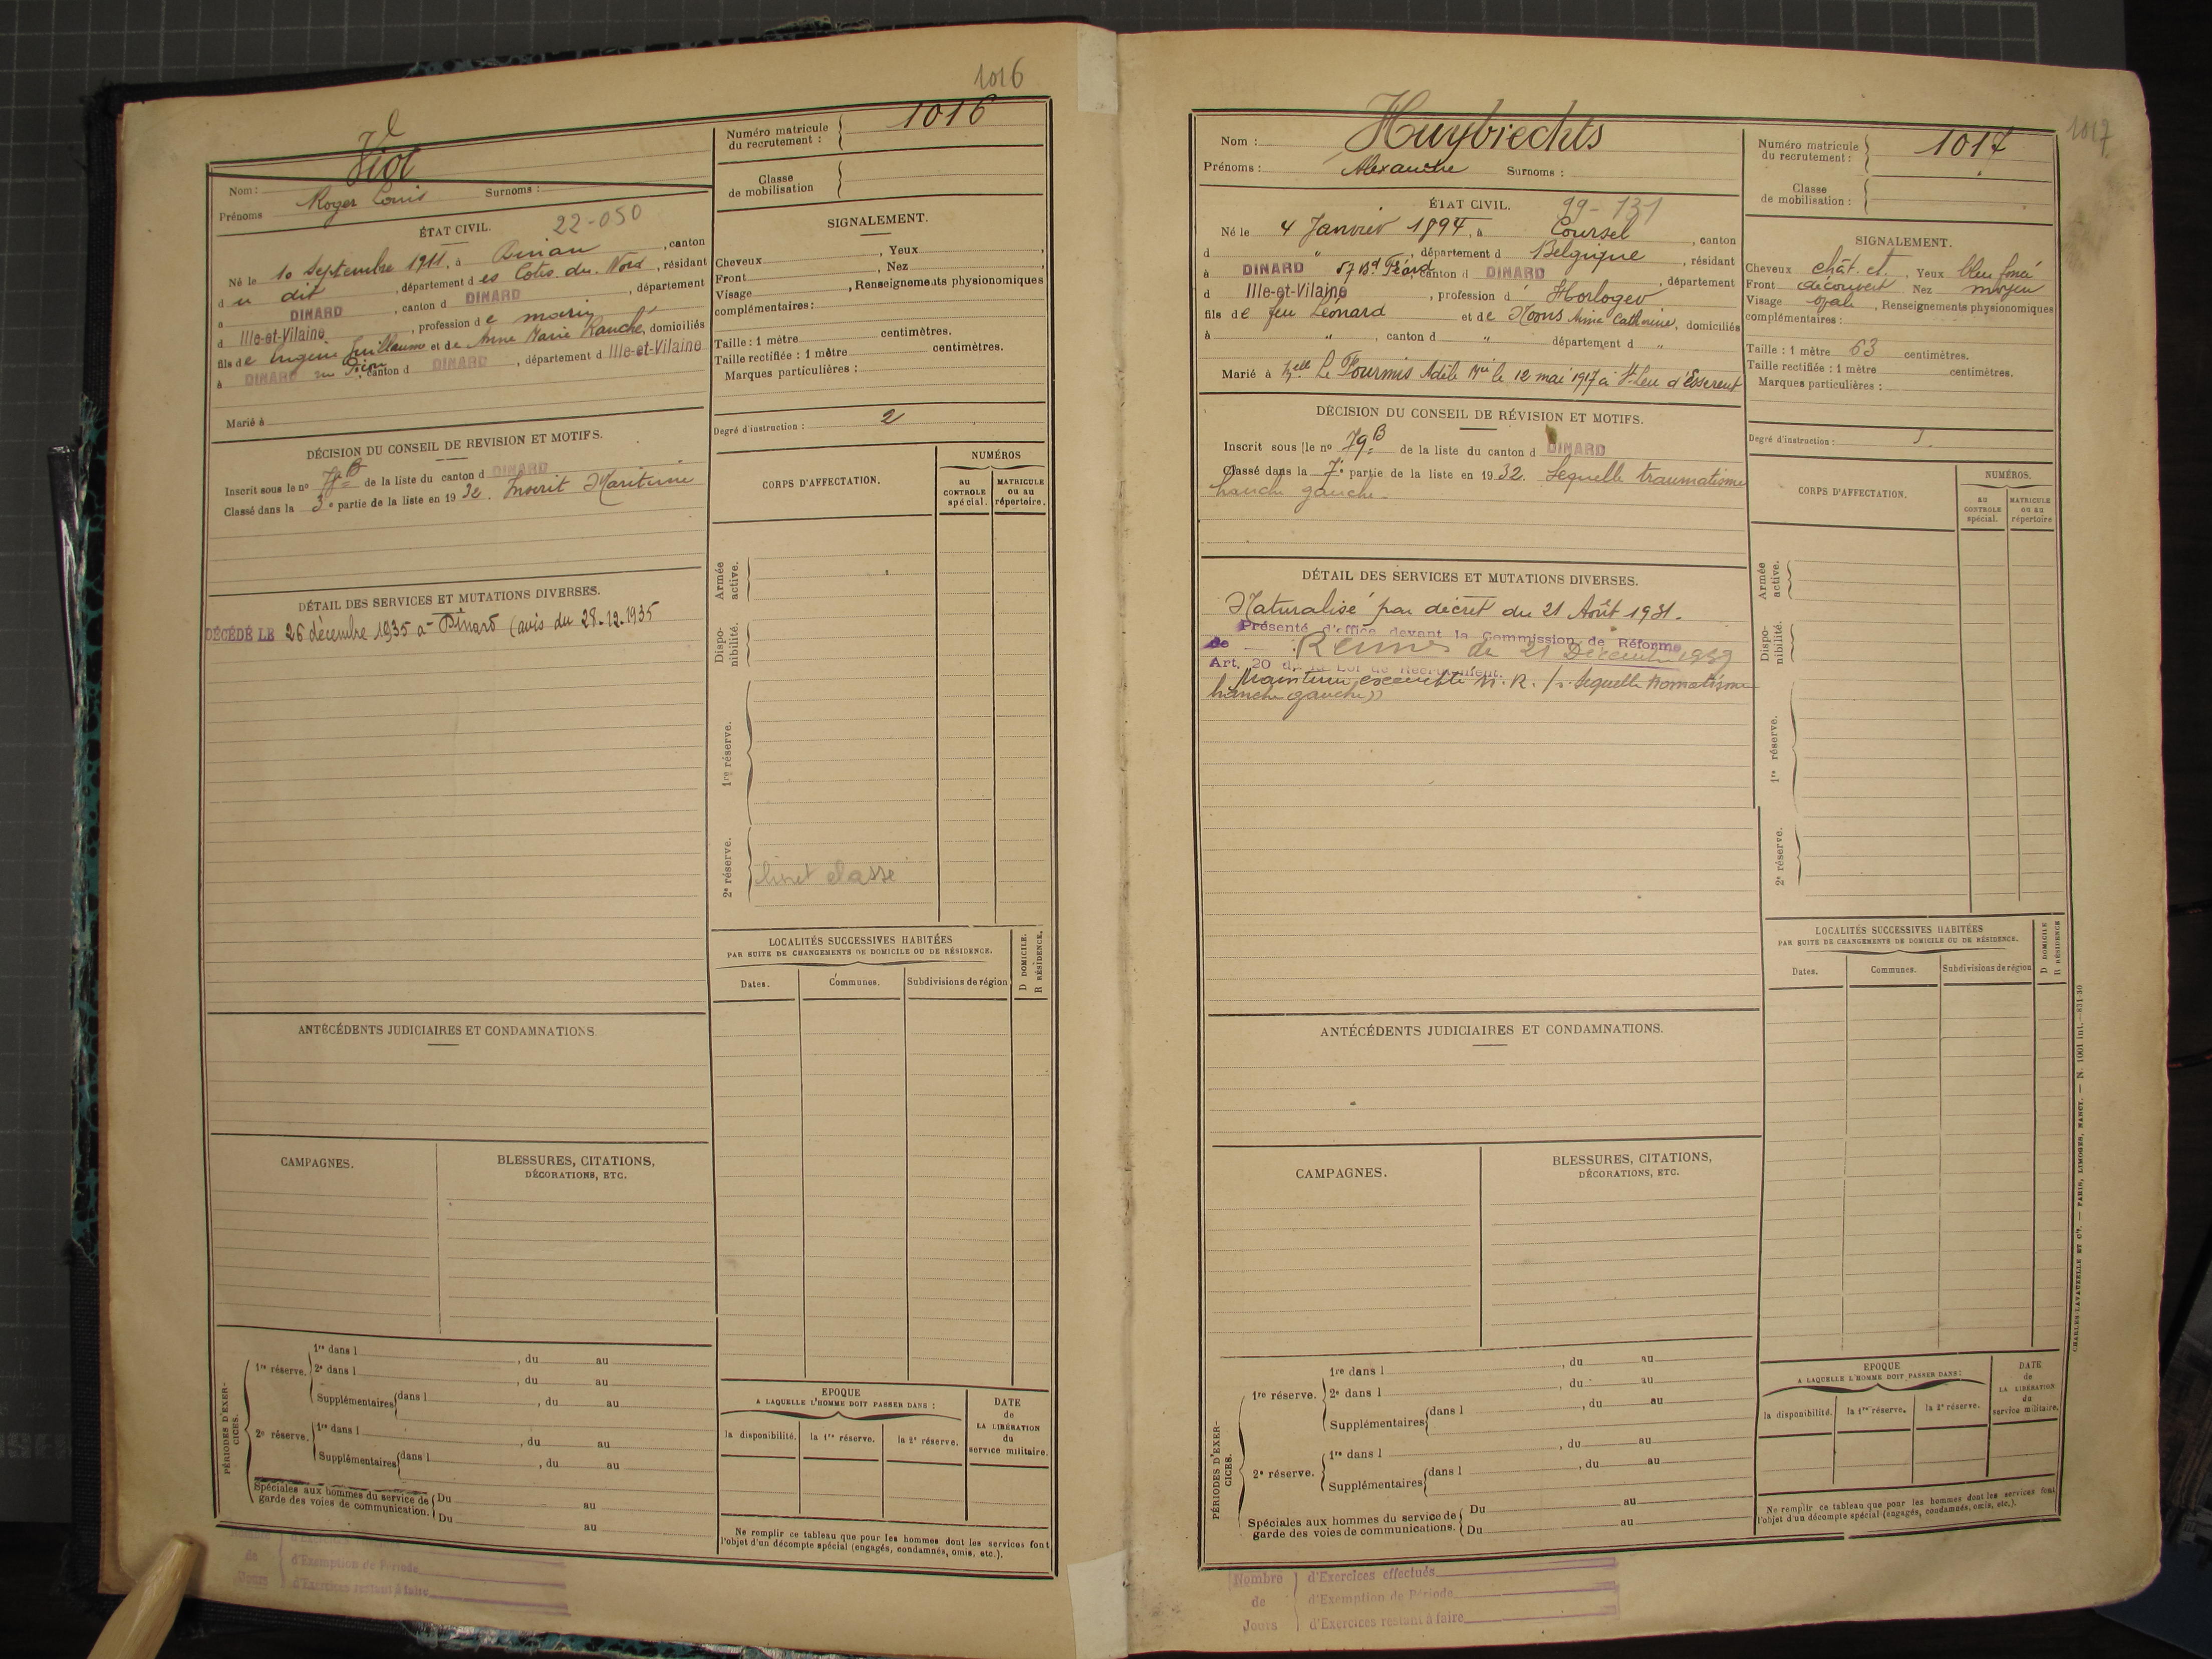 1016
Viol
Nom :
Prénoms Roger Louis Surnoms :
Numéro matricule du recrutement : 1016
Classe de mobilisation
ÉTAT CIVIL. 22-050
Né le 10 Septembre 1911, à , canton
d u dit , département d es Cotes du Nord , résidant
à DINARD , canton d DINARD , département
d Ille-et-Vilaine , profession d e marin
fils de Eugène Guillaume et de Anne Marie , domiciliés
à DINARD canton d DINARD , département d Ille-et-Vilaine
Marié à
SIGNALEMENT.
Cheveux , Yeux ,
Front , Nez ,
Visage , Renseignements physionomiques
complémentaires :
Taille : 1 mètre centimètres.
Taille rectifiée : 1 mètre centimètres.
Marques particulières :
Degré d'instruction : 2
DÉCISION DU CONSEIL DE REVISION ET MOTIFS.
Inscrit sous le nº de la liste du canton d DINARD
Classé dans la 3 e partie de la liste en 19 32. Inscrit Maritime
DÉTAIL DES SERVICES ET MUTATIONS DIVERSES.
DÉCÉDÉ LE 26 décembre 1935 à Dinard (avis du 28.12.1935
CORPS D'AFFECTATION.
NUMÉROS
AU CONTROLE spécial.
MATRICULE ou au répertoire.
Armée active.
Dispo-
nibilité.
1re réserve.
2e réserve.
livret classé
LOCALITÉS SUCCESSIVES HABITÉES
PAR SUITE DE CHANGEMENTS DE DOMICILE OU DE RÉSIDENCE.
Dates. Communes. Subdivisions de région
D DOMICILE.
R RÉSIDENCE.
ANTÉCÉDENTS JUDICIAIRES ET CONDAMNATIONS.
CAMPAGNES.
BLESSURES, CITATIONS,
DÉCORATIONS, ETC.
PÉRIODES D'EXER-
CICES.
1re réserve.
1re dans l , du au
2e dans l , du au
Supplémentaires dans l , du au
2e réserve.
1re dans l , du au
Supplémentaires dans l , du au
Spéciales aux hommes du service de
garde des voies de communication.
Du au
Du au
EPOQUE
A LAQUELLE L'HOMME DOIT PASSER DANS :
la disponibilité. la 1re réserve. la 2e réserve.
DATE
de
LA LIBÉRATION
du
service militaire.
Ne remplir ce tableau que pour les hommes dont les services font
l'objet d'un décompte spécial (engagés, condamnés, omis, etc.).
de
Jours
d'Exemption de Période
d'Exercices restant à faire
1017
Nom : Huybrechts
Prénoms : Alexandre Surnoms :
Numéro matricule du recrutement : 1017
Classe de mobilisation :
ÉTAT CIVIL. 99-131
Né le 4 Janvier 1894, à Coursel , canton
d " , département d Belgique , résidant
à DINARD 57 Bd Féard canton d DINARD
d Ille-et-Vilaine , profession d Horloger , département
fils de feu Léonard et de Anne Catherine, domiciliés
à " , canton d " département d "
Marié à Le Fourmis Adèle le 12 mai 1917 à St Leu d'Esserent
SIGNALEMENT.
Cheveux chât. ct. , Yeux bleu foncé
Front découvert Nez moyen
Visage oval , Renseignements physionomiques
complémentaires :
Taille : 1 mètre 63 centimètres.
Taille rectifiée : 1 mètre centimètres.
Marques particulières :
Degré d'instruction :
DÉCISION DU CONSEIL DE RÉVISION ET MOTIFS.
Inscrit sous le nº 79 B de la liste du canton d DINARD
Classé dans la 7e partie de la liste en 1932. Sequelle traumatisme
hanche gauche.
DÉTAIL DES SERVICES ET MUTATIONS DIVERSES.
Naturalisé par décret du 21 Août 1931.
Présenté d'office devant la Commission de Réforme
de Rennes du 21 Décembre 1939
Art. 20 de la Loi de Recrutement.
Maintenu exempté N.R. (Sequelle
hanche gauche))
CORPS D'AFFECTATION.
NUMÉROS.
AU CONTROLE spécial.
MATRICULE ou au répertoire
Armée active.
Dispo-
nibilité.
1re réserve.
2e réserve.
LOCALITÉS SUCCESSIVES HABITÉES
PAR SUITE DE CHANGEMENTS DE DOMICILE OU DE RÉSIDENCE.
Dates. Communes. Subdivisions de région
D DOMICILE
R RÉSIDENCE
ANTÉCÉDENTS JUDICIAIRES ET CONDAMNATIONS.
CAMPAGNES.
BLESSURES, CITATIONS,
DÉCORATIONS, ETC.
PÉRIODES D'EXER-
CICES.
1re réserve.
1re dans l , du au
2e dans l , du au
Supplémentaires dans l , du au
2e réserve.
1re dans l , du au
Supplémentaires dans l , du au
Spéciales aux hommes du service de
garde des voies de communications.
Du au
Du au
EPOQUE
A LAQUELLE L'HOMME DOIT PASSER DANS :
la disponibilité. la 1re réserve. la 2e réserve.
DATE
de
LA LIBÉRATION
du
service militaire.
Ne remplir ce tableau que pour les hommes dont les services font
l'objet d'un décompte spécial (engagés, condamnés, omis, etc.).
CHARLES-LAVAUZELLE ET Cie. — PARIS, LIMOGES, NANCY. — N. 1001 int.—831-30
Nombre
de
Jours
d'Exercices effectués
d'Exemption de Période
d'Exercices restant à faire